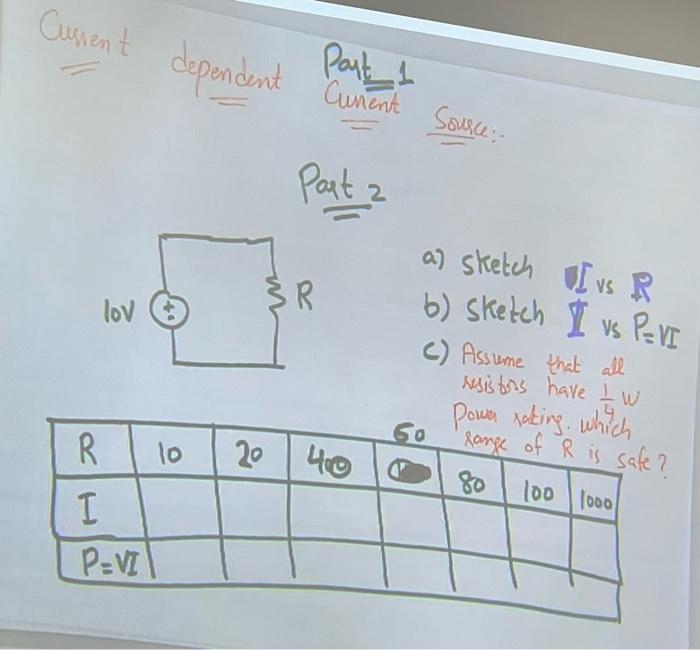 Part 1
Current dependent Current Source:-
Part 2
10V
R
a) sketch I vs R
b) sketch I vs P=VI
c) Assume that all
resistors have 1/4 W
Power rating. which
range of R is safe?
R 10 20 40 60 80 100 1000
I
P=VI